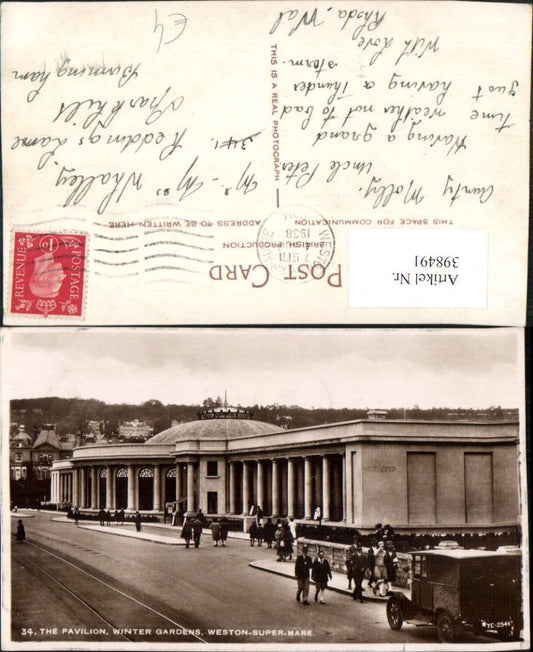 POST CARD
BRITISH PRODUCTION
THIS SPACE FOR COMMUNICATION
ADDRESS TO BE WRITTEN HERE
THIS IS A REAL PHOTOGRAPH
Aunty Molly.
Uncle Peter.
Having a grand
time weather not to bad
just having a thunder
storm.
With Love
Rhoda, Wal
Mr - Mrs Whalley,
341. Reddings Lane
Sparkhill
Birmingham
£4
POSTAGE
REVENUE
1D
1938
Artikel Nr.
398491
34. THE PAVILION, WINTER GARDENS, WESTON-SUPER-MARE.
YC-2544